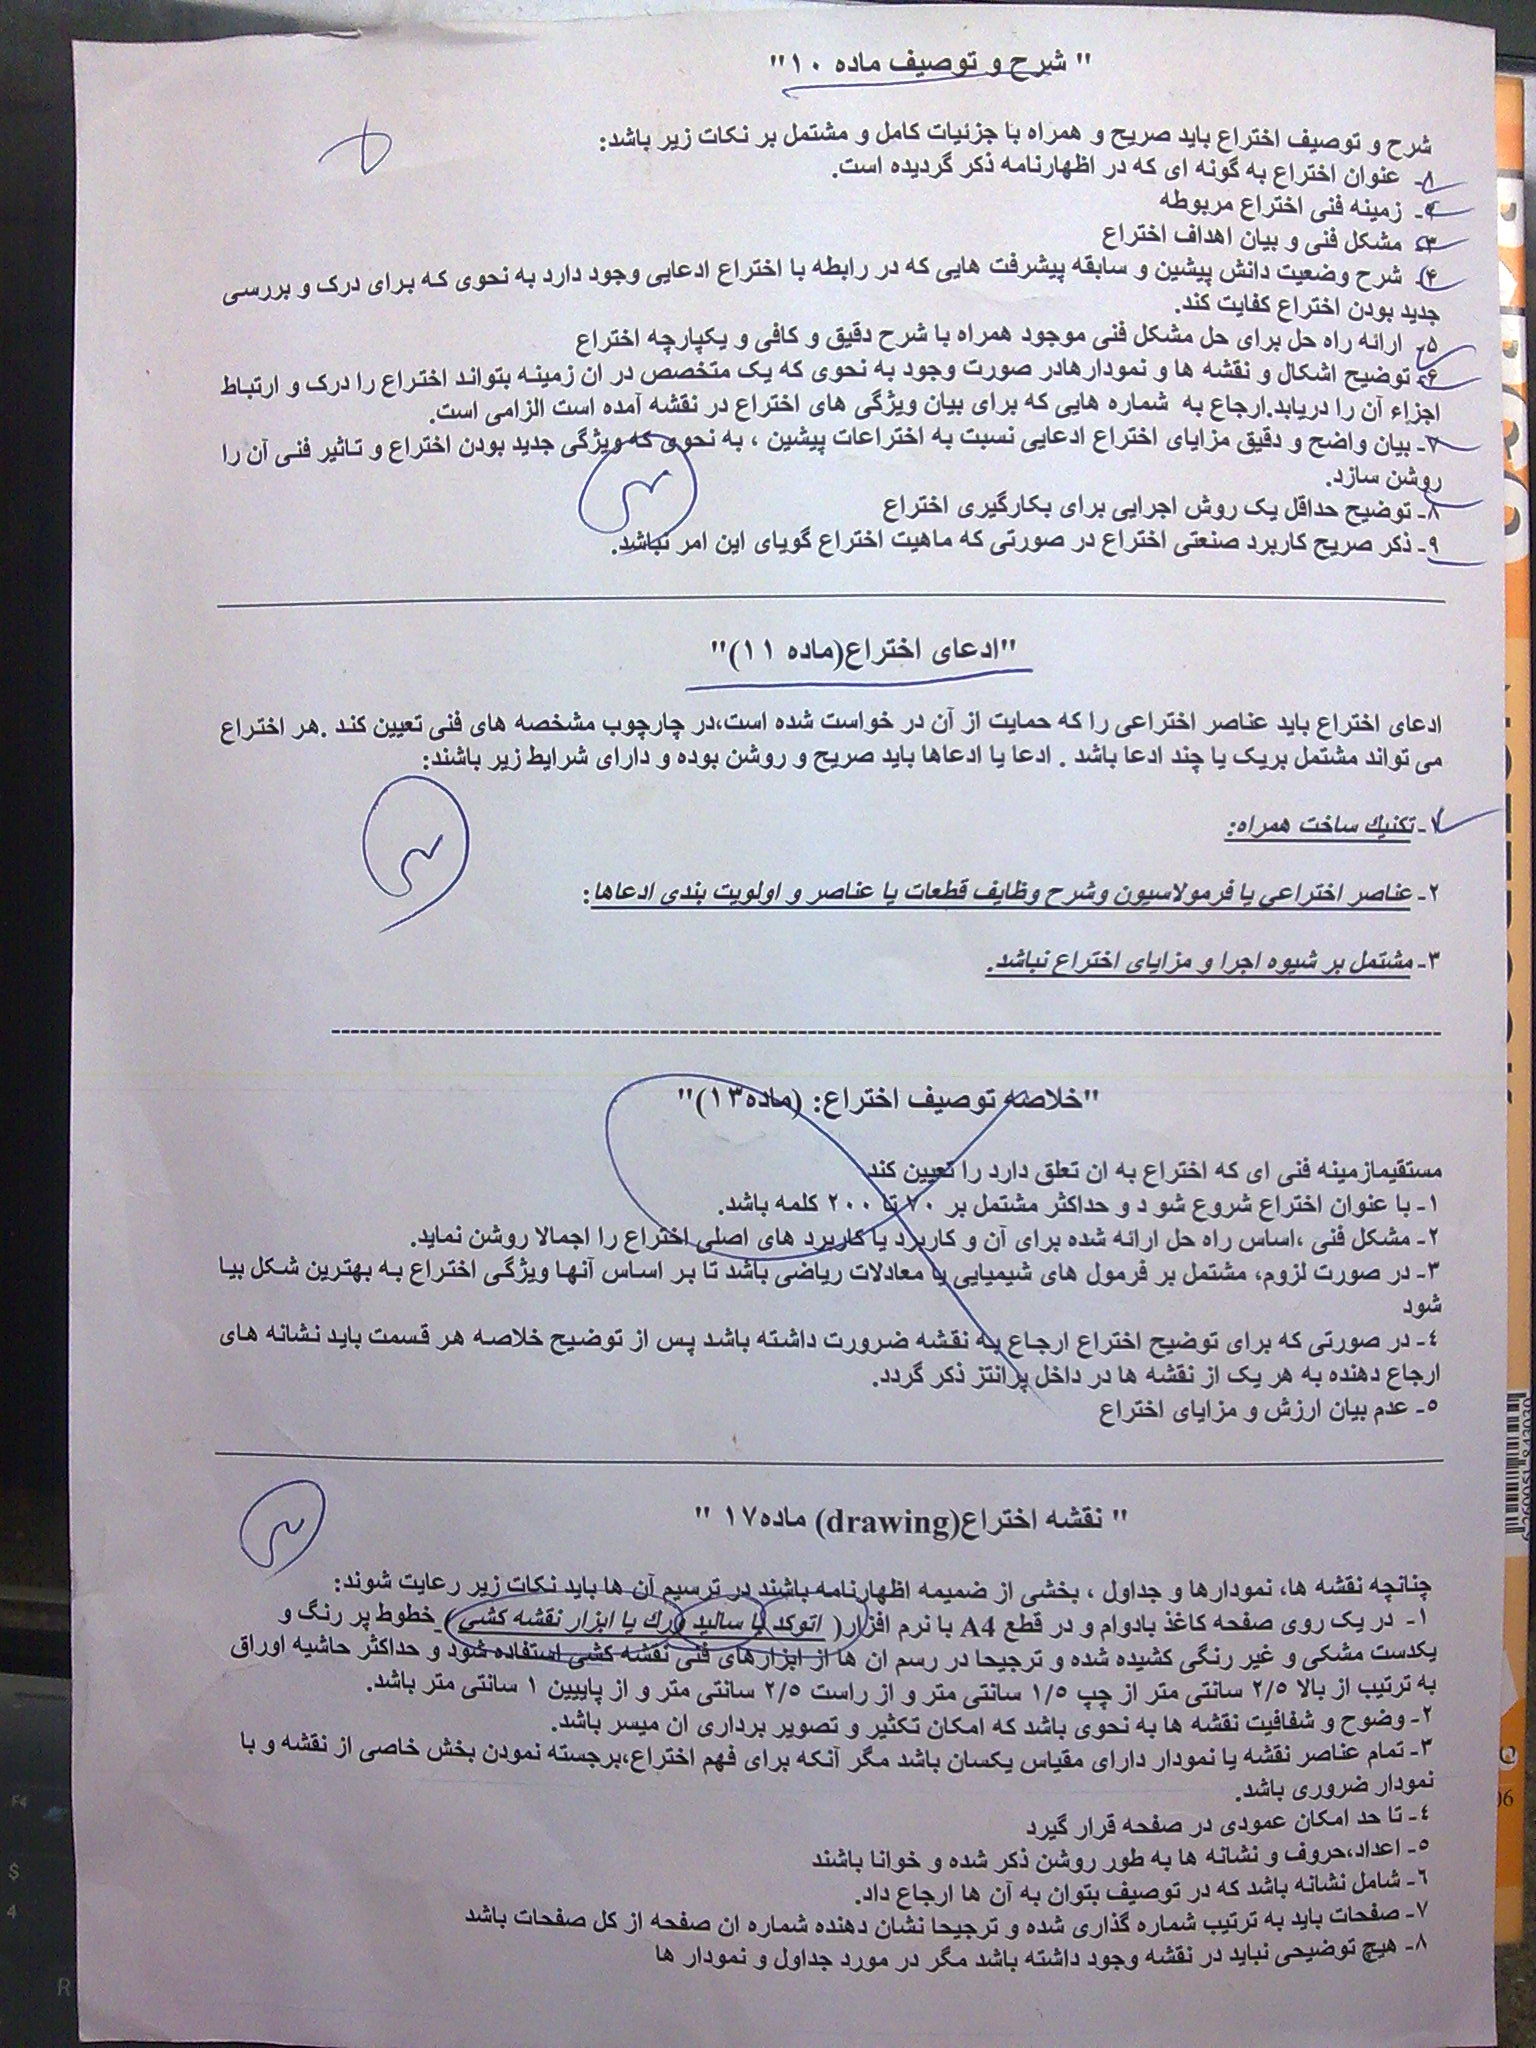 " شرح و توصیف ماده ۱۰"
شرح و توصیف اختراع باید صریح و همراه با جزئیات کامل و مشتمل بر نکات زیر باشد:
۱- عنوان اختراع به گونه ای که در اظهارنامه ذکر گردیده است.
۲- زمینه فنی اختراع مربوطه
۳- مشکل فنی و بیان اهداف اختراع
۴- شرح وضعیت دانش پیشین و سابقه پیشرفت هایی که در رابطه با اختراع ادعایی وجود دارد به نحوی که برای درک و بررسی
جدید بودن اختراع کفایت کند.
۵- ارائه راه حل برای حل مشکل فنی موجود همراه با شرح دقیق و کافی و یکپارچه اختراع
۶- توضیح اشکال و نقشه ها و نمودارهادر صورت وجود به نحوی که یک متخصص در ان زمینه بتواند اختراع را درک و ارتباط
اجزاء آن را دریابد.ارجاع به شماره هایی که برای بیان ویژگی های اختراع در نقشه آمده است الزامی است.
۷- بیان واضح و دقیق مزایای اختراع ادعایی نسبت به اختراعات پیشین ، به نحوی که ویژگی جدید بودن اختراع و تاثیر فنی آن را
روشن سازد.
۸- توضیح حداقل یک روش اجرایی برای بکارگیری اختراع
۹- ذکر صریح کاربرد صنعتی اختراع در صورتی که ماهیت اختراع گویای این امر نباشد.
"ادعای اختراع(ماده ۱۱)"
ادعای اختراع باید عناصر اختراعی را که حمایت از آن در خواست شده است،در چارچوب مشخصه های فنی تعیین کند .هر اختراع
می تواند مشتمل بریک یا چند ادعا باشد . ادعا یا ادعاها باید صریح و روشن بوده و دارای شرایط زیر باشند:
۱- تکنیك ساخت همراه:
۲- عناصر اختراعی یا فرمولاسیون وشرح وظایف قطعات یا عناصر و اولویت بندی ادعاها:
۳- مشتمل بر شیوه اجرا و مزایای اختراع نباشد.
"خلاصه توصیف اختراع: (ماده۱۳)"
مستقیمازمینه فنی ای که اختراع به ان تعلق دارد را تعیین کند
۱- با عنوان اختراع شروع شو د و حداکثر مشتمل بر ۷۰ تا ۲۰۰ کلمه باشد.
۲- مشکل فنی ،اساس راه حل ارائه شده برای آن و کاربرد یا کاربرد های اصلی اختراع را اجمالا روشن نماید.
۳- در صورت لزوم، مشتمل بر فرمول های شیمیایی یا معادلات ریاضی باشد تا بر اساس آنها ویژگی اختراع به بهترین شکل بیا
شود
٤- در صورتی که برای توضیح اختراع ارجاع به نقشه ضرورت داشته باشد پس از توضیح خلاصه هر قسمت باید نشانه های
ارجاع دهنده به هر یک از نقشه ها در داخل پرانتز ذکر گردد.
٥- عدم بیان ارزش و مزایای اختراع
" نقشه اختراع(drawing) ماده۱۷ "
چنانچه نقشه ها، نمودارها و جداول ، بخشی از ضمیمه اظهارنامه باشند در ترسیم آن ها باید نکات زیر رعایت شوند:
۱- در یک روی صفحه کاغذ بادوام و در قطع A4 با نرم افزار( اتوکد یا سالید ورك یا ابزار نقشه کشی )_خطوط پر رنگ و
یکدست مشکی و غیر رنگی کشیده شده و ترجیحا در رسم ان ها از ابزارهای فنی نقشه کشی استفاده شود و حداکثر حاشیه اوراق
به ترتیب از بالا ۲/٥ سانتی متر از چپ ۱/٥ سانتی متر و از راست ۲/٥ سانتی متر و از پاییین ۱ سانتی متر باشد.
۲- وضوح و شفافیت نقشه ها به نحوی باشد که امکان تکثیر و تصویر برداری ان میسر باشد.
۳- تمام عناصر نقشه یا نمودار دارای مقیاس یکسان باشد مگر آنکه برای فهم اختراع،برجسته نمودن بخش خاصی از نقشه و با
نمودار ضروری باشد.
٤- تا حد امکان عمودی در صفحه قرار گیرد
٥- اعداد،حروف و نشانه ها به طور روشن ذکر شده و خوانا باشند
٦- شامل نشانه باشد که در توصیف بتوان به آن ها ارجاع داد.
۷- صفحات باید به ترتیب شماره گذاری شده و ترجیحا نشان دهنده شماره ان صفحه از کل صفحات باشد
۸- هیچ توضیحی نباید در نقشه وجود داشته باشد مگر در مورد جداول و نمودار ها
F4
$
4
R